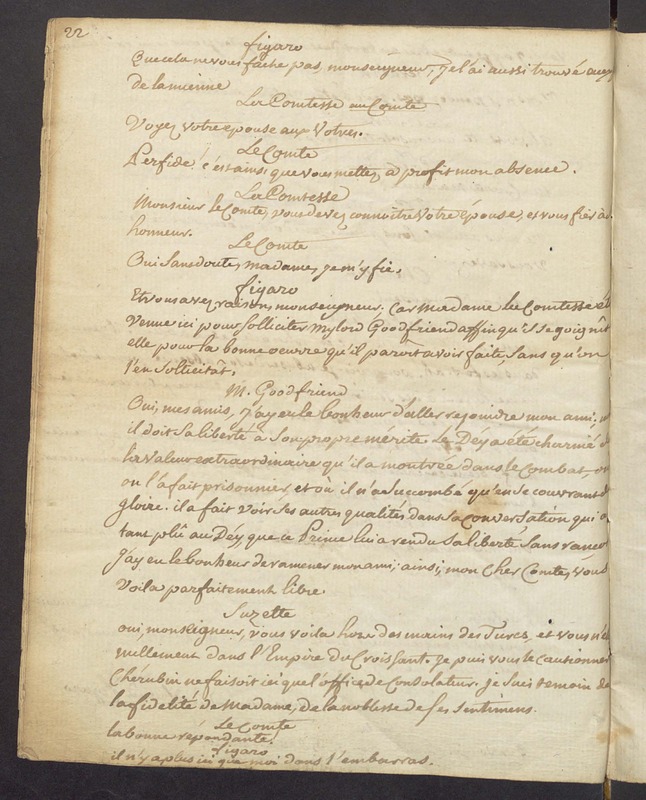 22
figaro
Que cela ne vous fache pas, monseigneur, j'el'ai aussi trouvé
de la mienne
La Comtesse au Comte
Voyez votre epouse aux Votres.
Le Comte
Perfide! c'est ainsi que vous mettez a profit mon absence.
La Comtesse
Monsieur le Comte, vous devez connoître Votre épouse, et vous fier à
honneur.
Le Comte
Oui sans doute, madame, je m'y fie.
figaro
Et vous avez raison, monseigneur, Car Madame la Comtesse
Venue ici pour solliciter mylord Goodfriend affin qu'il se joignît
elle pour la bonne oeuvre qu'il paroît avoir faite, sans qu'on
l'en sollicitat.
M. Goodfriend
Oui, mes amis, j'ay eu le bonheur d'aller rejoindre mon ami;
il doit sa liberté à son propre mérite. Le Déy a été charmé
la valeur extraordinaire qu'il a montrée dans le Combat,
on l'a fait prisonnier, et où il n'a succombé qu'en se couvrant
gloire. il a fait voir ses autres qualités dans sa Conversation qui
tant plû au Déy, que ce Prince lui a rendu sa liberté sans rançon
J'ay eu le bonheur de ramener mon ami; ainsi, mon Cher Comte, vous
Voila parfaitement libre
Suzette
oui, monseigneur, vous voila hors des mains des Turcs, et vous
nullement dans l'Empire du Croissant. Je puis vous le cautionner
Chérubin ne faisoit ici que l'office de Consolateur. Je suis temoin de
la fidelité de Madame, de la noblesse de ses sentimens.
Le Comte
la bonne répondante!
figaro
il n'y a plus ici que moi dans l'embarras.